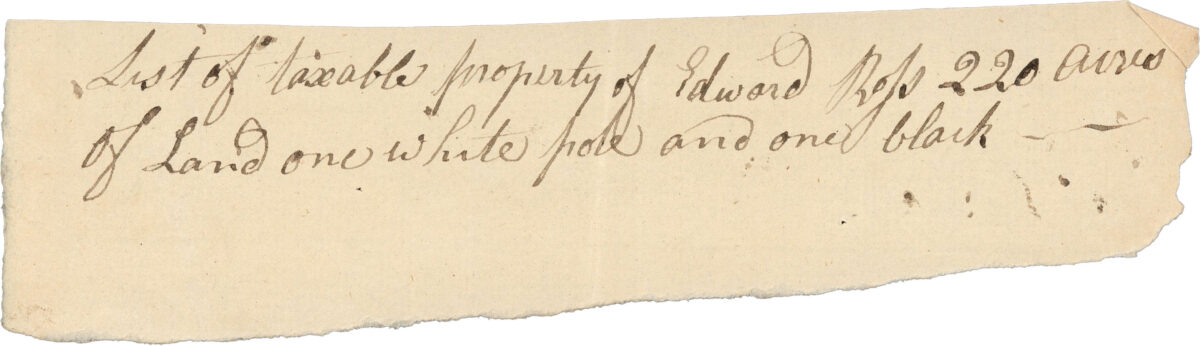 List of taxable property of Edward Ross 220 acres
of Land one white pole and one black